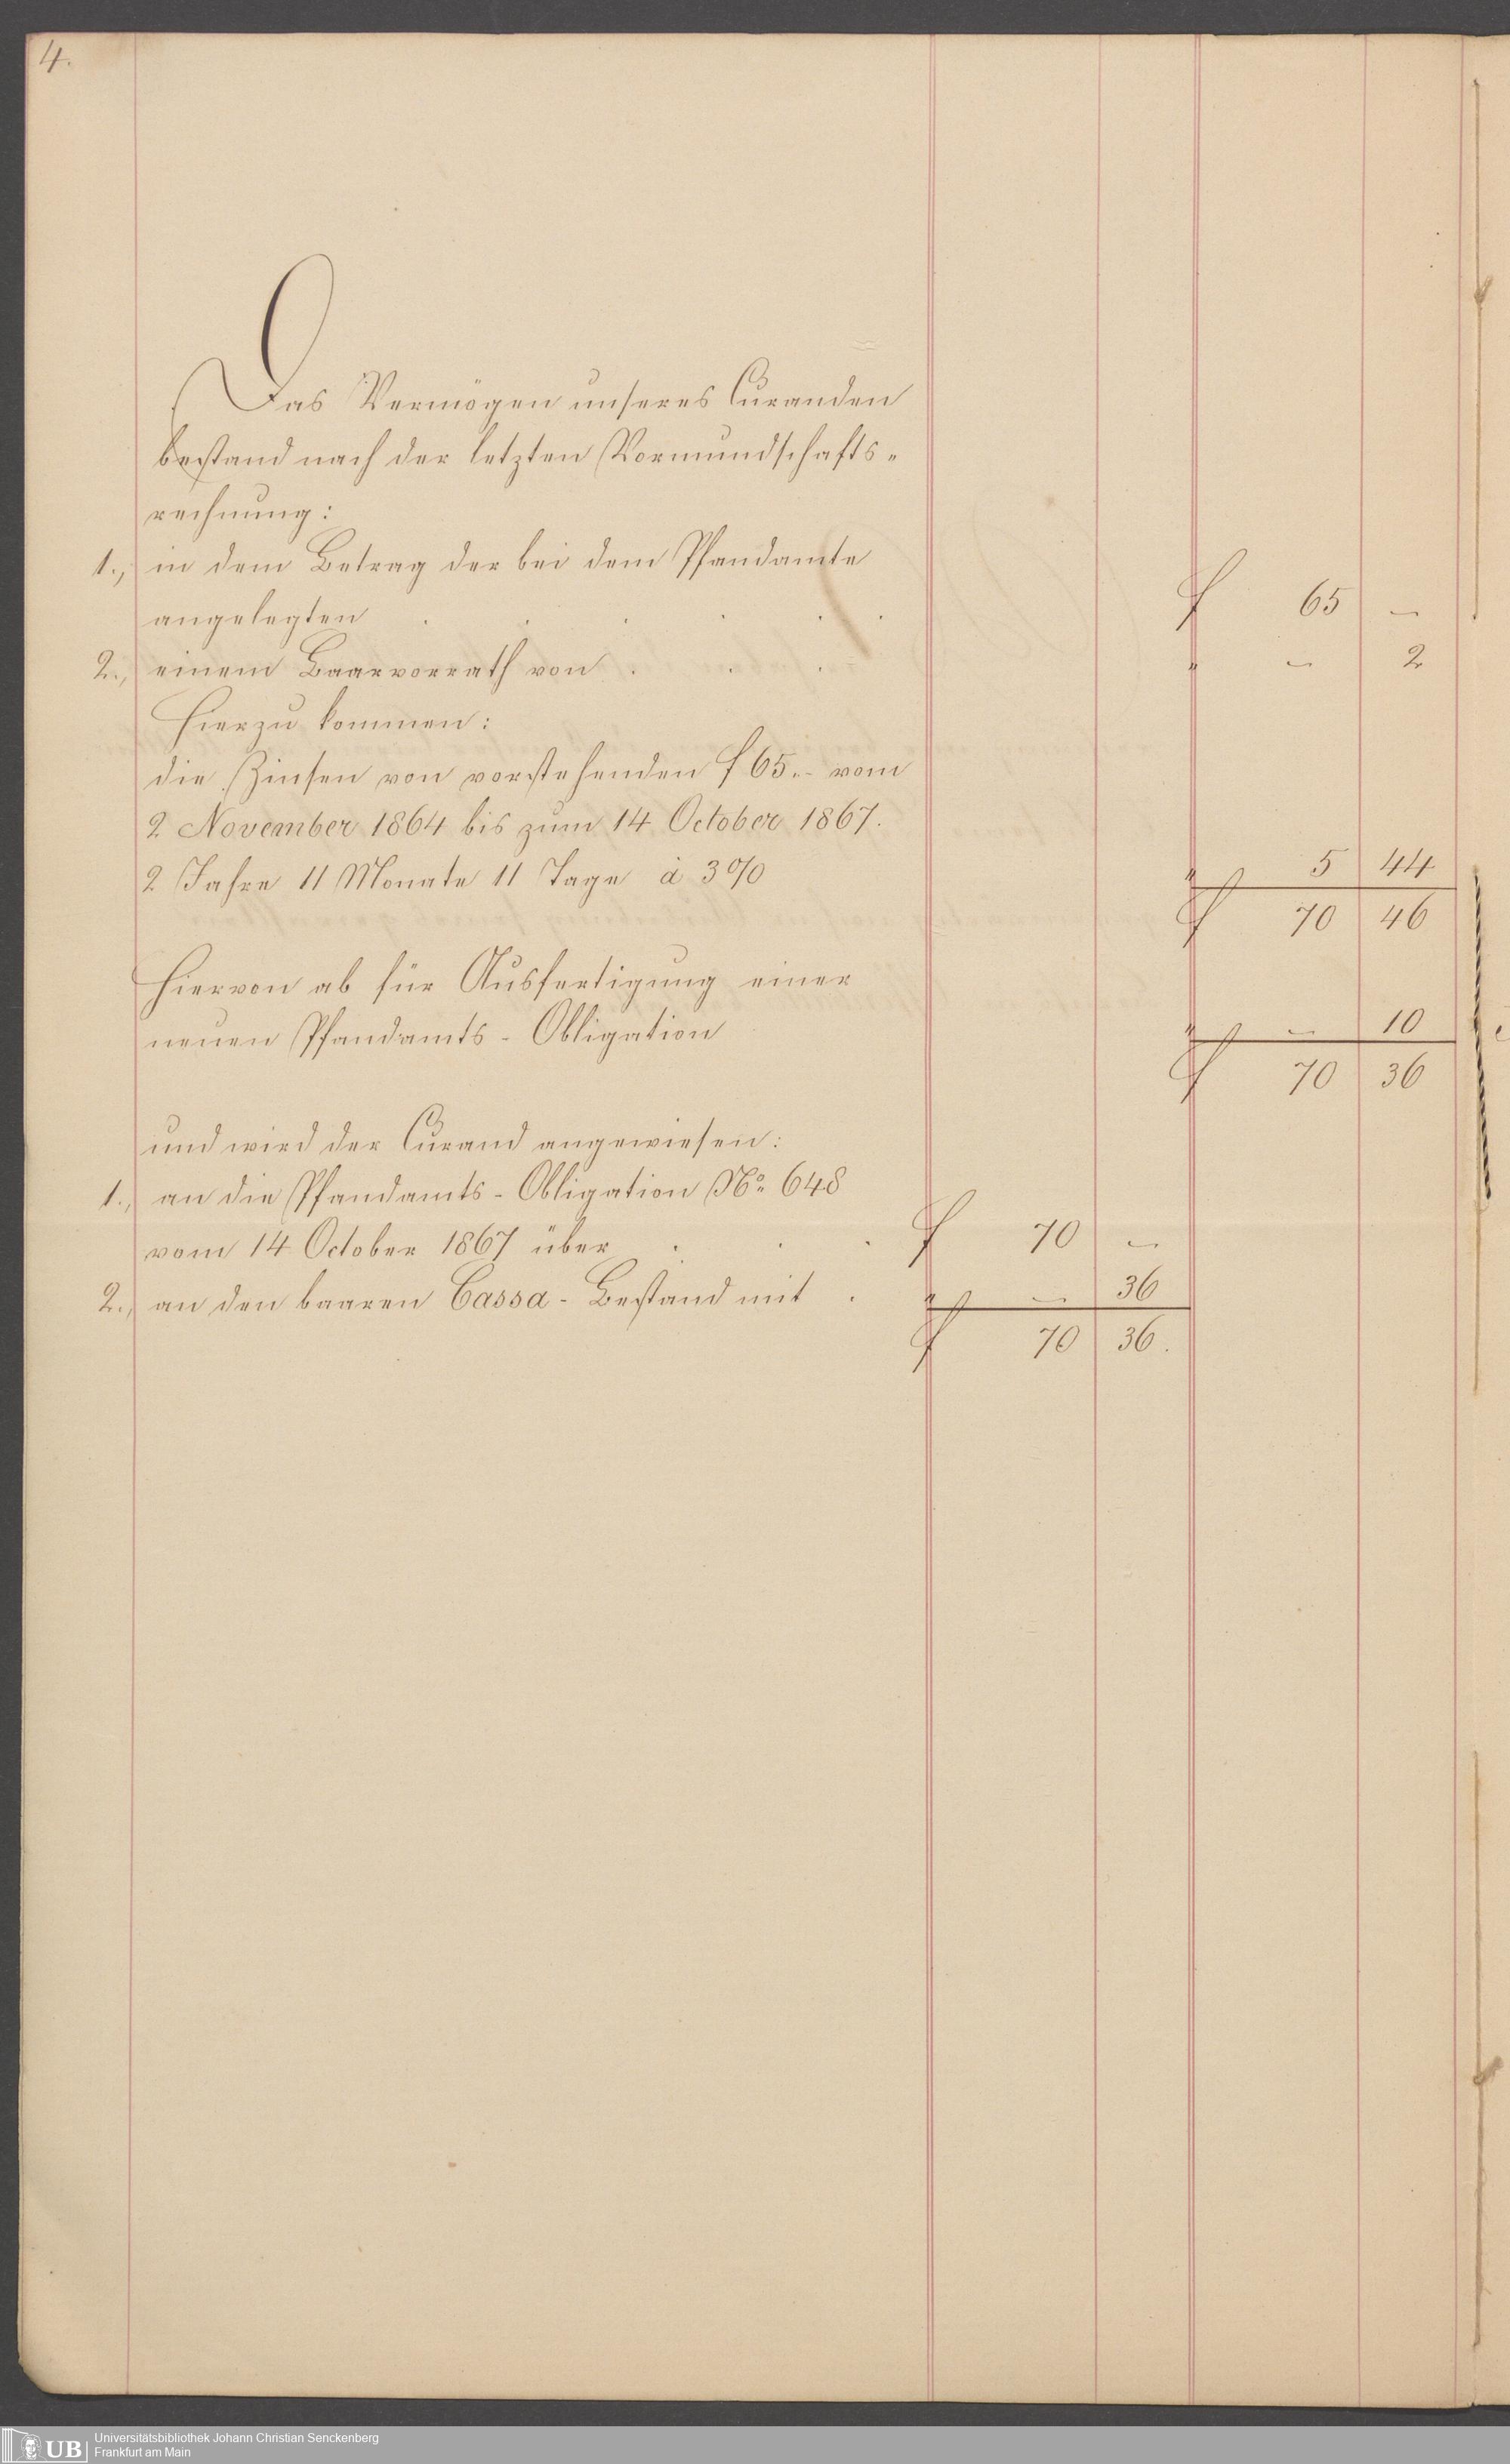 4.
Das Vermögen unseres Curanden
bestand nach der letzten Vormundschafts-
rechnung:
1., in dem Betrag der bei dem Pfandamte
angelegten . . . . . f 65 –
2., einem Baarvorrath von . . . " – 2
Hierzu kommen:
die Zinsen von vorstehenden f 65.- vom
2 November 1864 bis zum 14 October 1867.
2 Jahre 11 Monate 11 Tage à 3% " 5 44
f 70 46
Hiervon ab für Ausfertigung einer
neuen Pfandamts-Obligation " – 10
f 70 36
und wird der Curand angewiesen:
1., an die Pfandamts-Obligation No 648
vom 14 October 1867 über . . . f 70 –
2., an den baaren Cassa-Bestand mit . " – 36
f 70 36.
UB Universitätsbibliothek Johann Christian Senckenberg
Frankfurt am Main